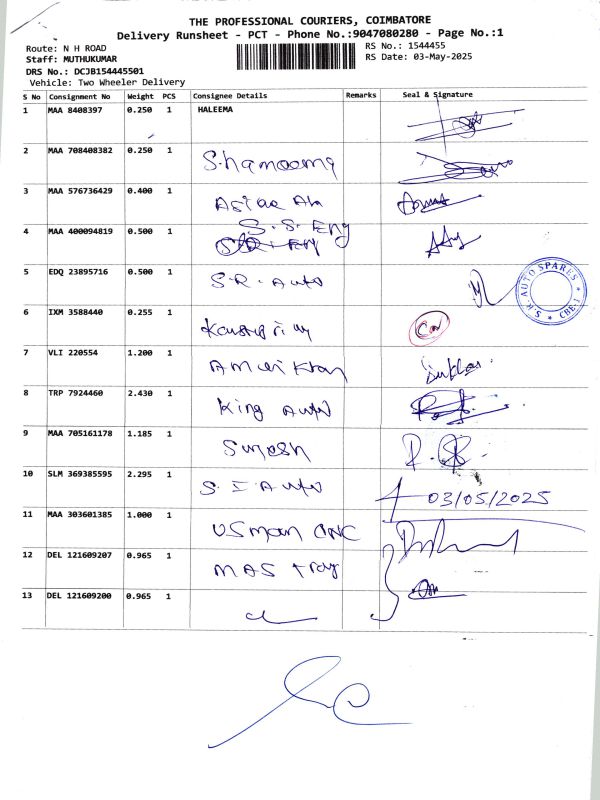 THE PROFESSIONAL COURIERS, COIMBATORE
Delivery Runsheet - PCT - Phone No.:9047080280 - Page No.:1
Route: N H ROAD
RS No.: 1544455
Staff: MUTHUKUMAR
RS Date: 03-May-2025
DRS No.: DCJB154445501
Vehicle: Two Wheeler Delivery
S No Consignment No Weight PCS Consignee Details Remarks Seal & Signature
1 MAA 8408397 0.250 1 HALEEMA
2 MAA 708408382 0.250 1
3 MAA 576736429 0.400 1
S.S. Eng
4 MAA 400094819 0.500 1
5 EDQ 23895716 0.500 1 S.R. Auto
S.R. AUTO SPARES CBE-1
6 IXM 3588440 0.255 1
7 VLI 220554 1.200 1
8 TRP 7924460 2.430 1 King Auto
9 MAA 705161178 1.185 1 Suresh
10 SLM 369385595 2.295 1 S.I Auto 03/05/2025
11 MAA 303601385 1.000 1 Usman CNC
12 DEL 121609207 0.965 1 MAS
13 DEL 121609200 0.965 1